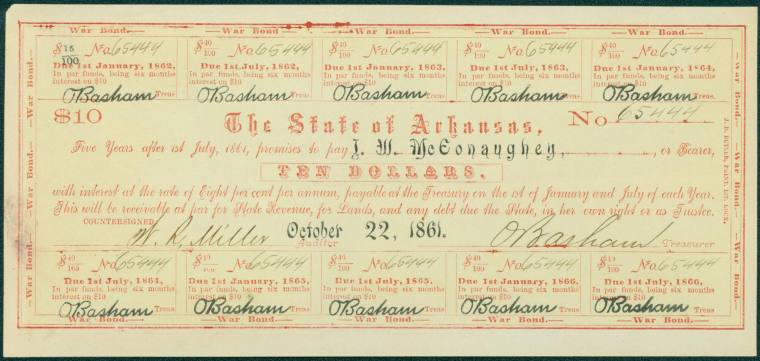 War Bond. War Bond. War Bond. War Bond. War Bond.
$ 15/100 No. 65444 $ 40/100 No. 65444 $ 40/100 No. 65444 $ 40/100 No. 65444 $ 40/100 No. 65444
Due 1st January, 1862, Due 1st July, 1862, Due 1st January, 1863, Due 1st July, 1863, Due 1st January, 1864,
In par funds, being six months In par funds, being six months In par funds, being six months In par funds, being six months In par funds, being six months
interest on $10 interest on $10 interest on $10 interest on $10 interest on $10
O Basham Treas O Basham Treas O Basham Treas O Basham Treas O Basham Treas
$10 The State of Arkansas, No 65444
Five Years after 1st July, 1861, promises to pay J. W. McConaughey, or Bearer,
TEN DOLLARS,
with interest at the rate of Eight per cent per annum, payable at the Treasury on the 1st of January and July of each Year.
This will be receivable at par for State Revenue, for Lands, and any debt due the State, in her own right or as Trustee.
COUNTERSIGNED
W. R. Miller October 22, 1861. O Basham
Auditor Treasurer
$ 40/100 No. 65444 $ 40/100 No. 65444 $ 40/100 No. 65444 $ 40/100 No. 65444 $ 40/100 No. 65444
Due 1st July, 1864, Due 1st January, 1865, Due 1st July, 1865, Due 1st January, 1866, Due 1st July, 1866,
In par funds, being six months In par funds, being six months In par funds, being six months In par funds, being six months In par funds, being six months
interest on $10 interest on $10 interest on $10 interest on $10 interest on $10
O Basham Treas O Basham Treas O Basham Treas O Basham Treas O Basham Treas
War Bond. War Bond. War Bond. War Bond. War Bond.
War Bond. War Bond. War Bond.
War Bond. War Bond.
BUTLER, PRINT, LIT. ROCK.